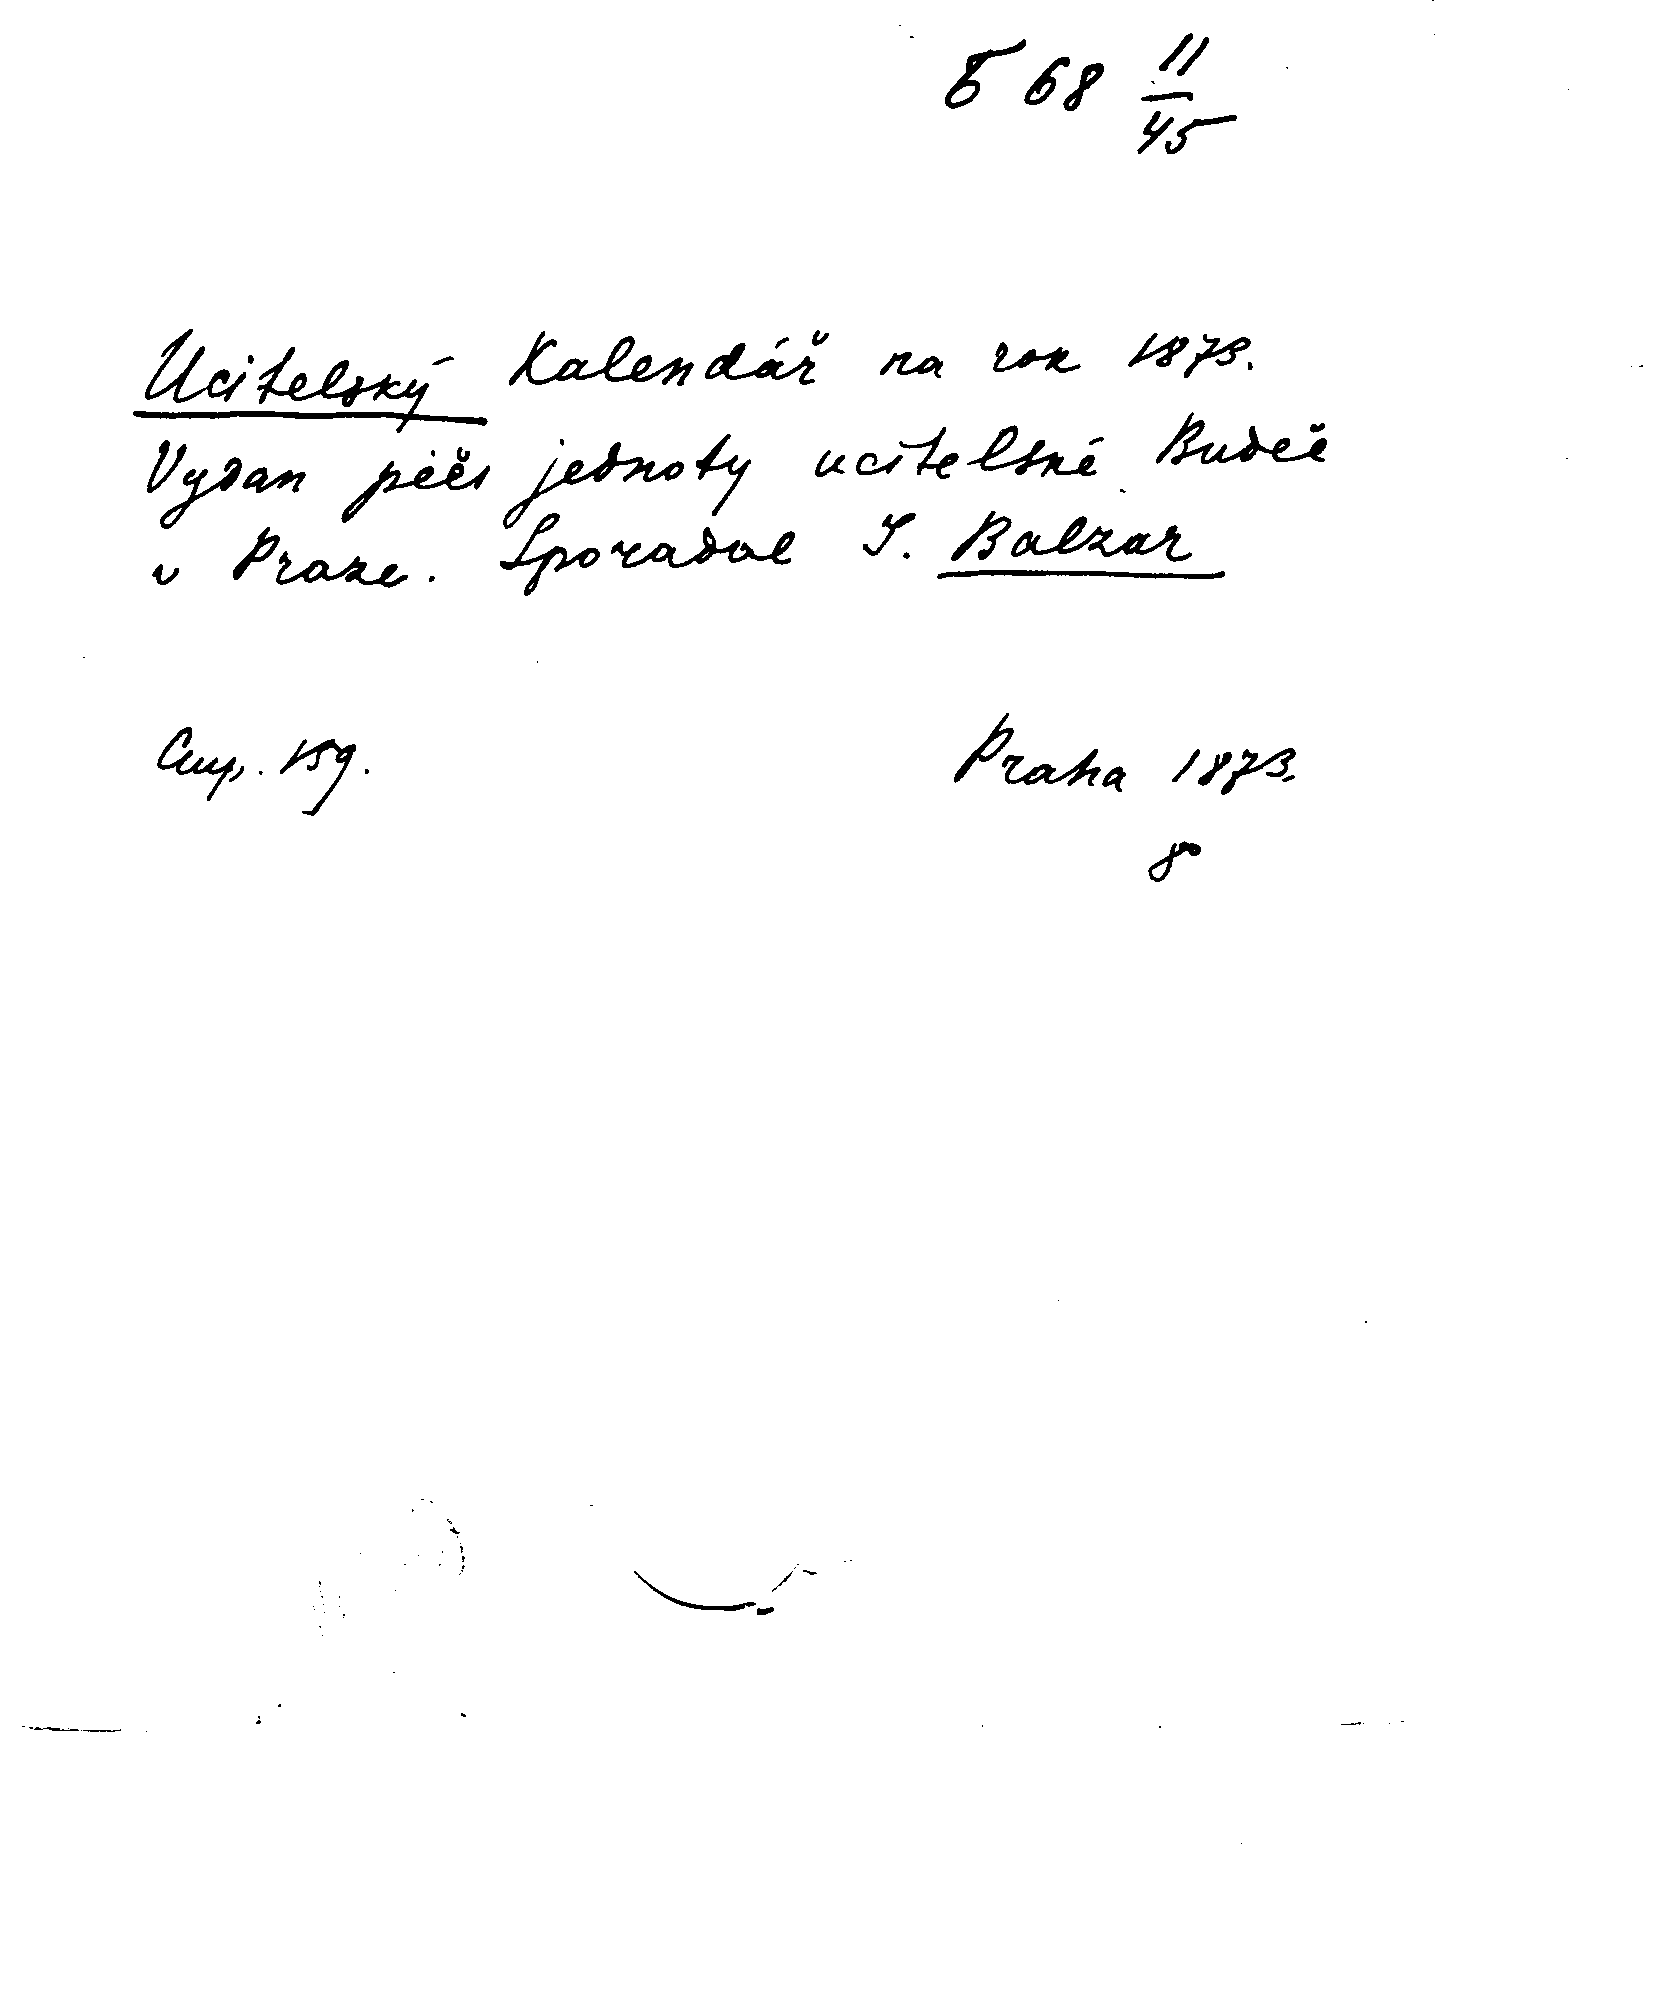 Б 68 11/45
Ucitelský Kalendář na rok 1873.
Vydan péčs jednoty ucitelské Budeč
v Praze. Sporadal J. Balzar
Стр. 159. Praha 1873.
8°